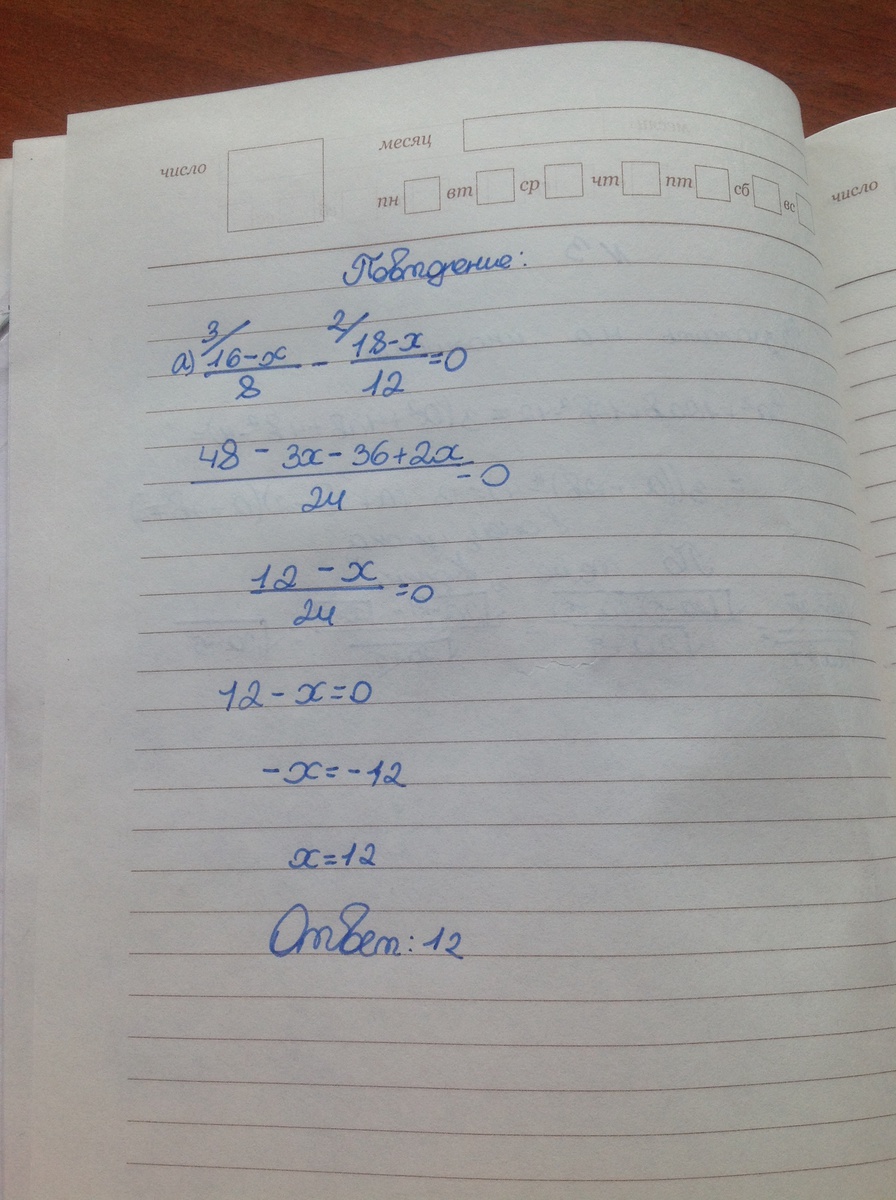 число месяц
пн вт ср чт пт сб вс
число
Повторение:
3/ 2/
а) 16-x/8 - 18-x/12 =0
48 - 3x - 36 + 2x/24 =0
12 - x/24 =0
12 - x = 0
-x = -12
x = 12
Ответ: 12